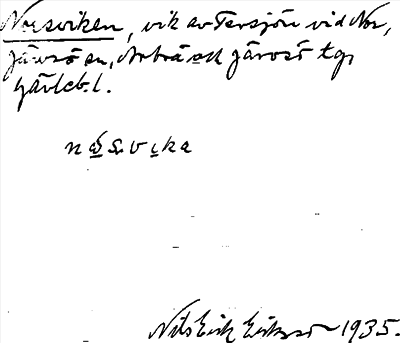 Norsviken, vik av Tersjön vid Nor,
Järvsö sn, Arbrå och Järvsö tg,
Gävlebl.
Nils Erik Eriksson 1935.